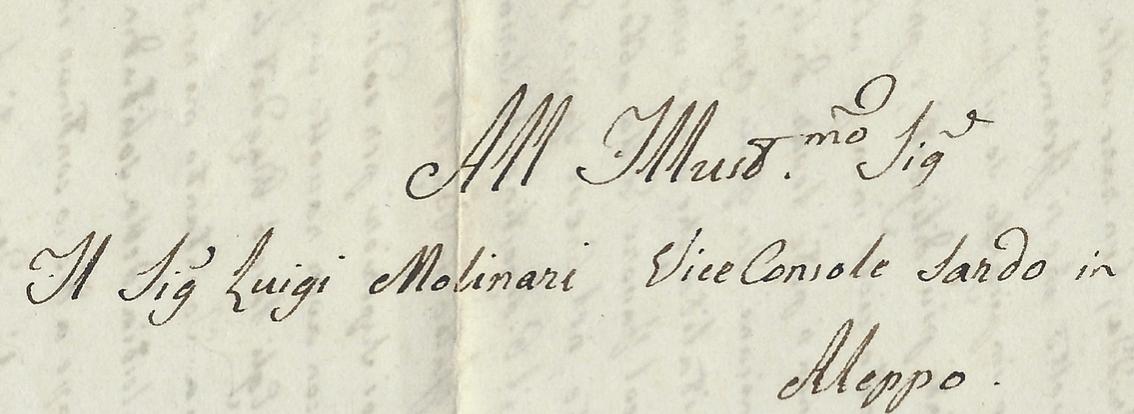 All Illust.mo Sigr
Il Sigr Luigi Molinari Vice Console Sardo in
Aleppo.